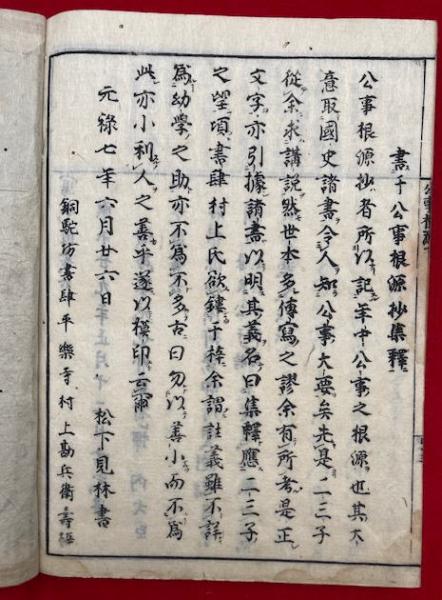 書于公事根源抄集釋
公事根源抄者所以記年中公事之根源也其大
意取國史諸書令人知公事大要矣先是二三子
從余求講説然世本多傳寫之謬余有所考是正
文字亦引據諸書以明其義名曰集釋應二三子
之望頃書肆村上氏欲鏤于梓余謂註義雖不詳
為幼學之助亦不為不多古曰勿以善小而不為
此亦小利人之善乎遂以模印云爾
元祿七年六月廿六日　松下見林書
銅駝坊書肆平樂寺村上勘兵衛壽梓